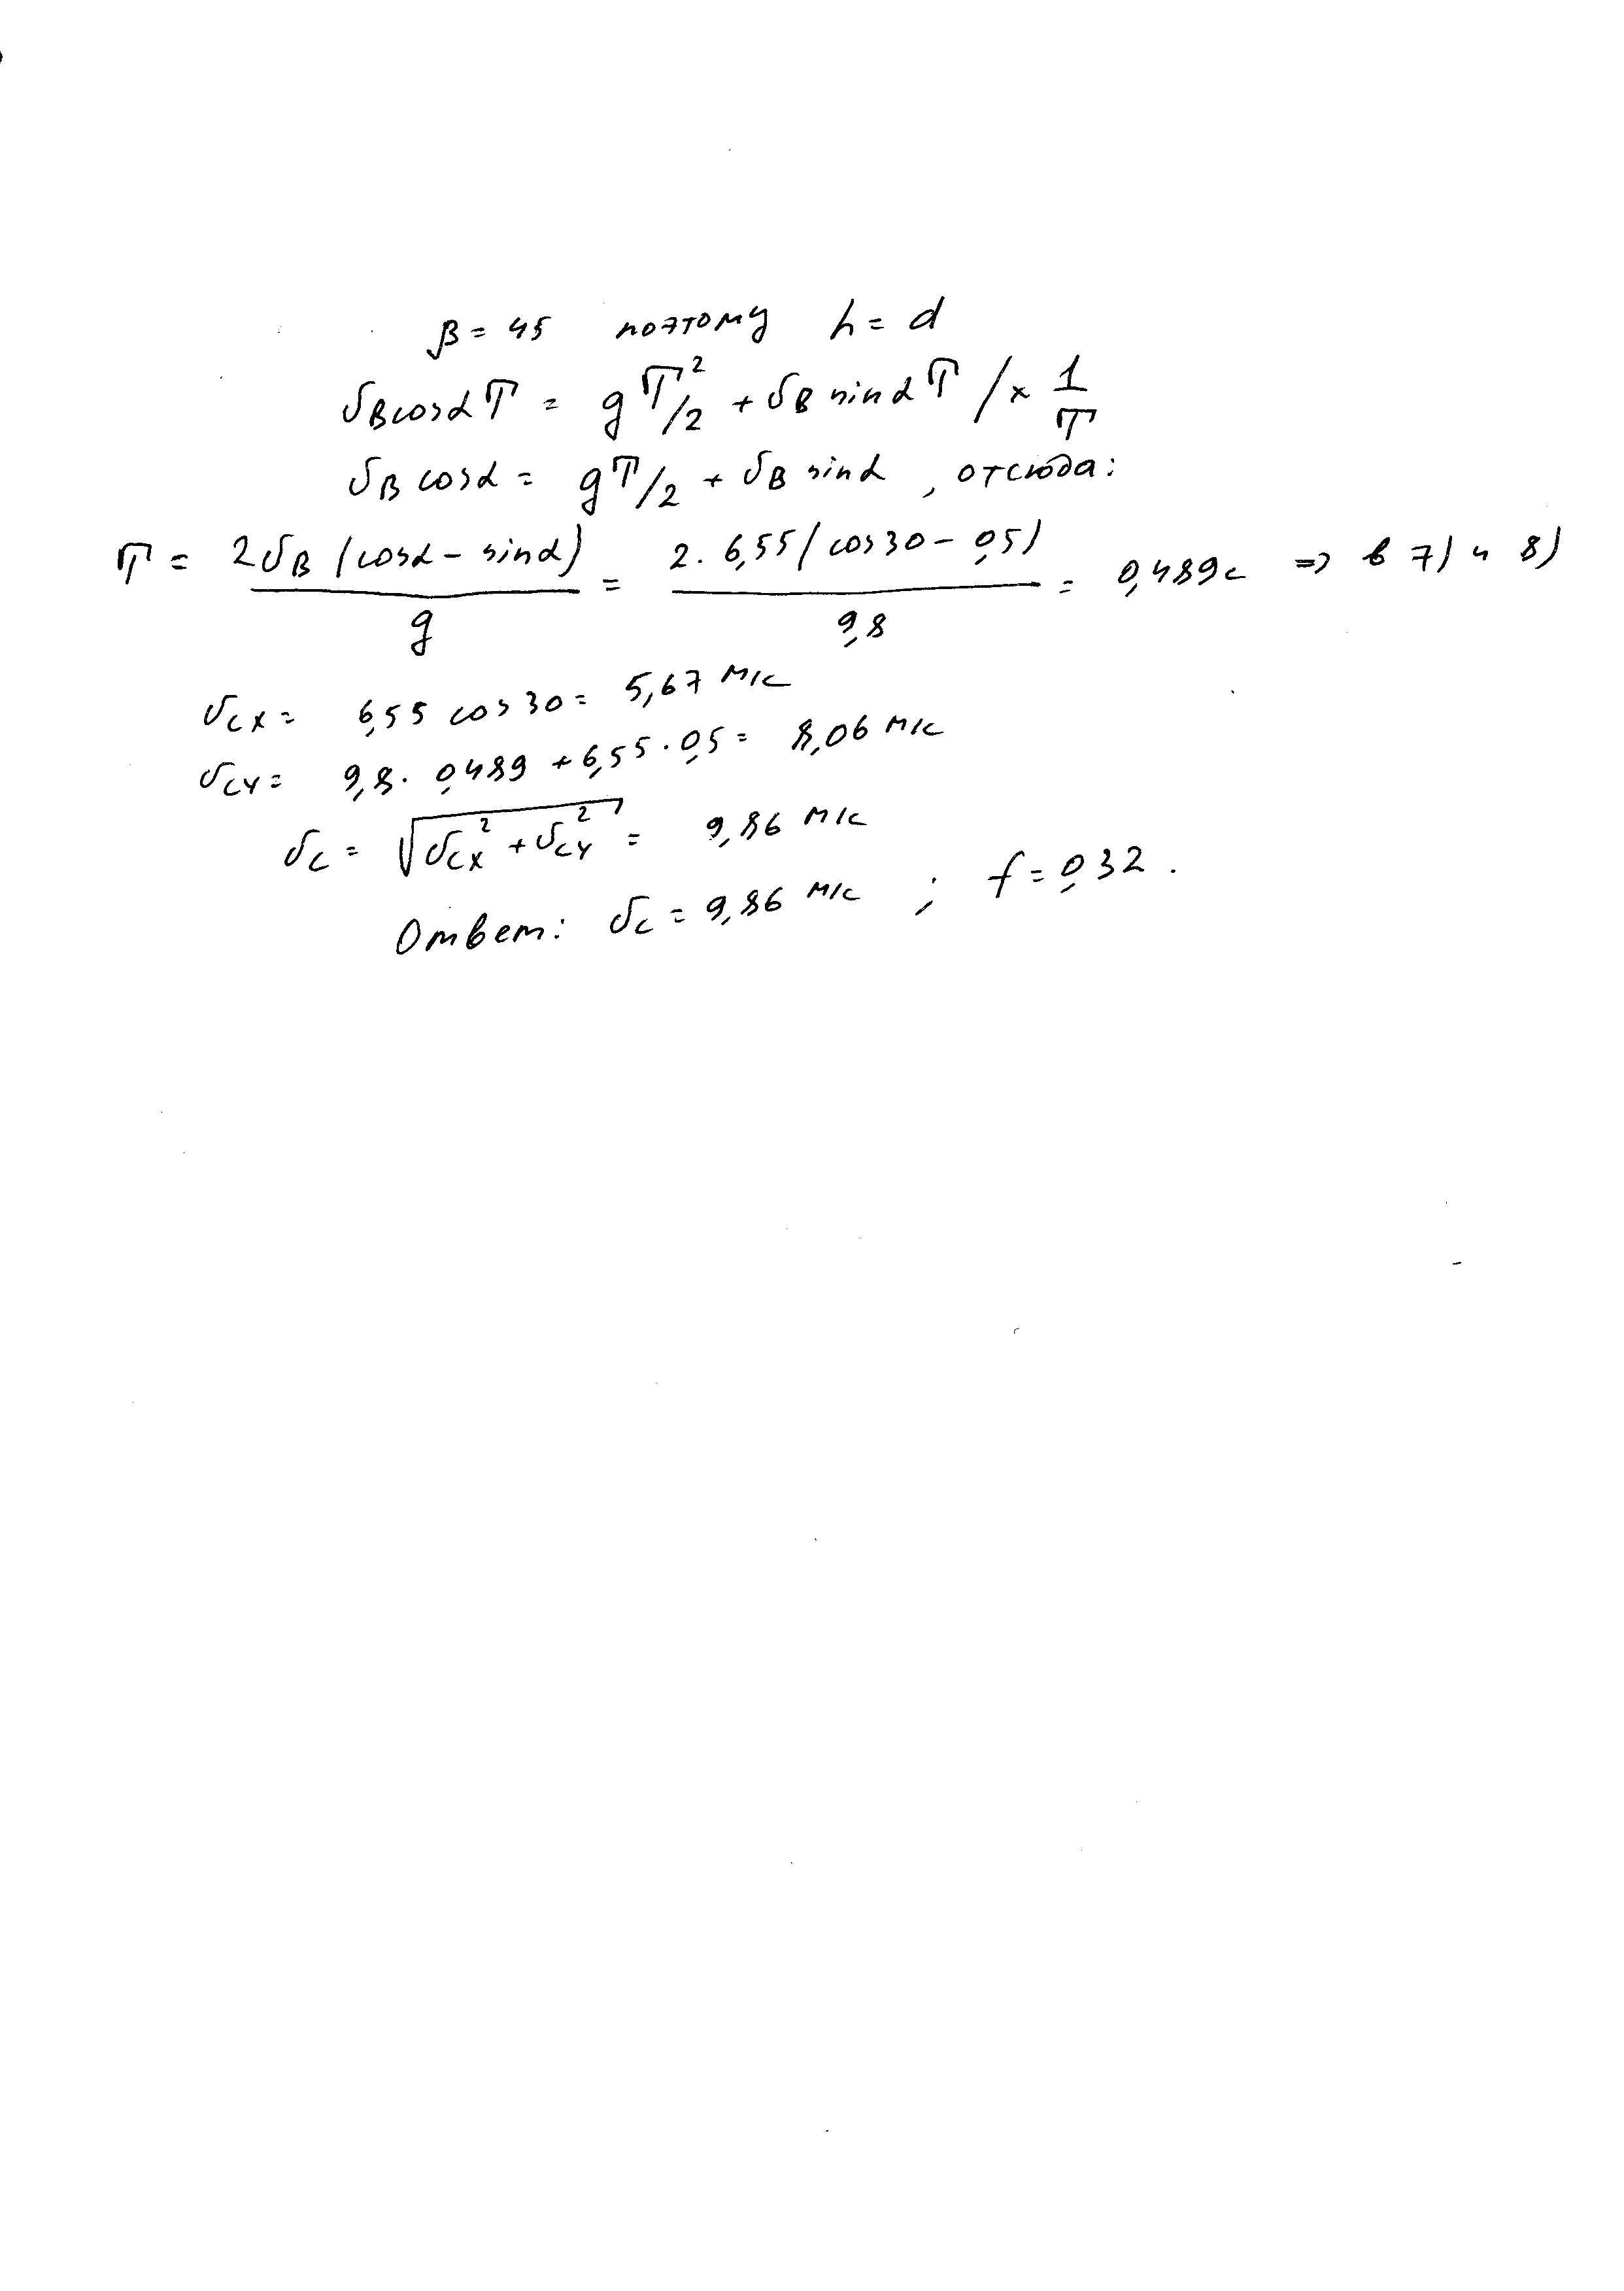 β = 45 поэтому h = d
υ_B cosα T = g T²/2 + υ_B sinα T / × 1/T
υ_B cosα = g T/2 + υ_B sinα , отсюда:
T = 2υ_B (cosα - sinα) / g = 2 · 6,55 (cos 30 - 0,5) / 9,8 = 0,489 с => в 7) и 8)
υ_CX = 6,55 cos 30 = 5,67 м/с
υ_CY = 9,8 · 0,489 + 6,55 · 0,5 = 8,06 м/с
υ_C = √(υ_CX² + υ_CY²) = 9,86 м/с
Ответ: υ_C = 9,86 м/с ; f = 0,32 .